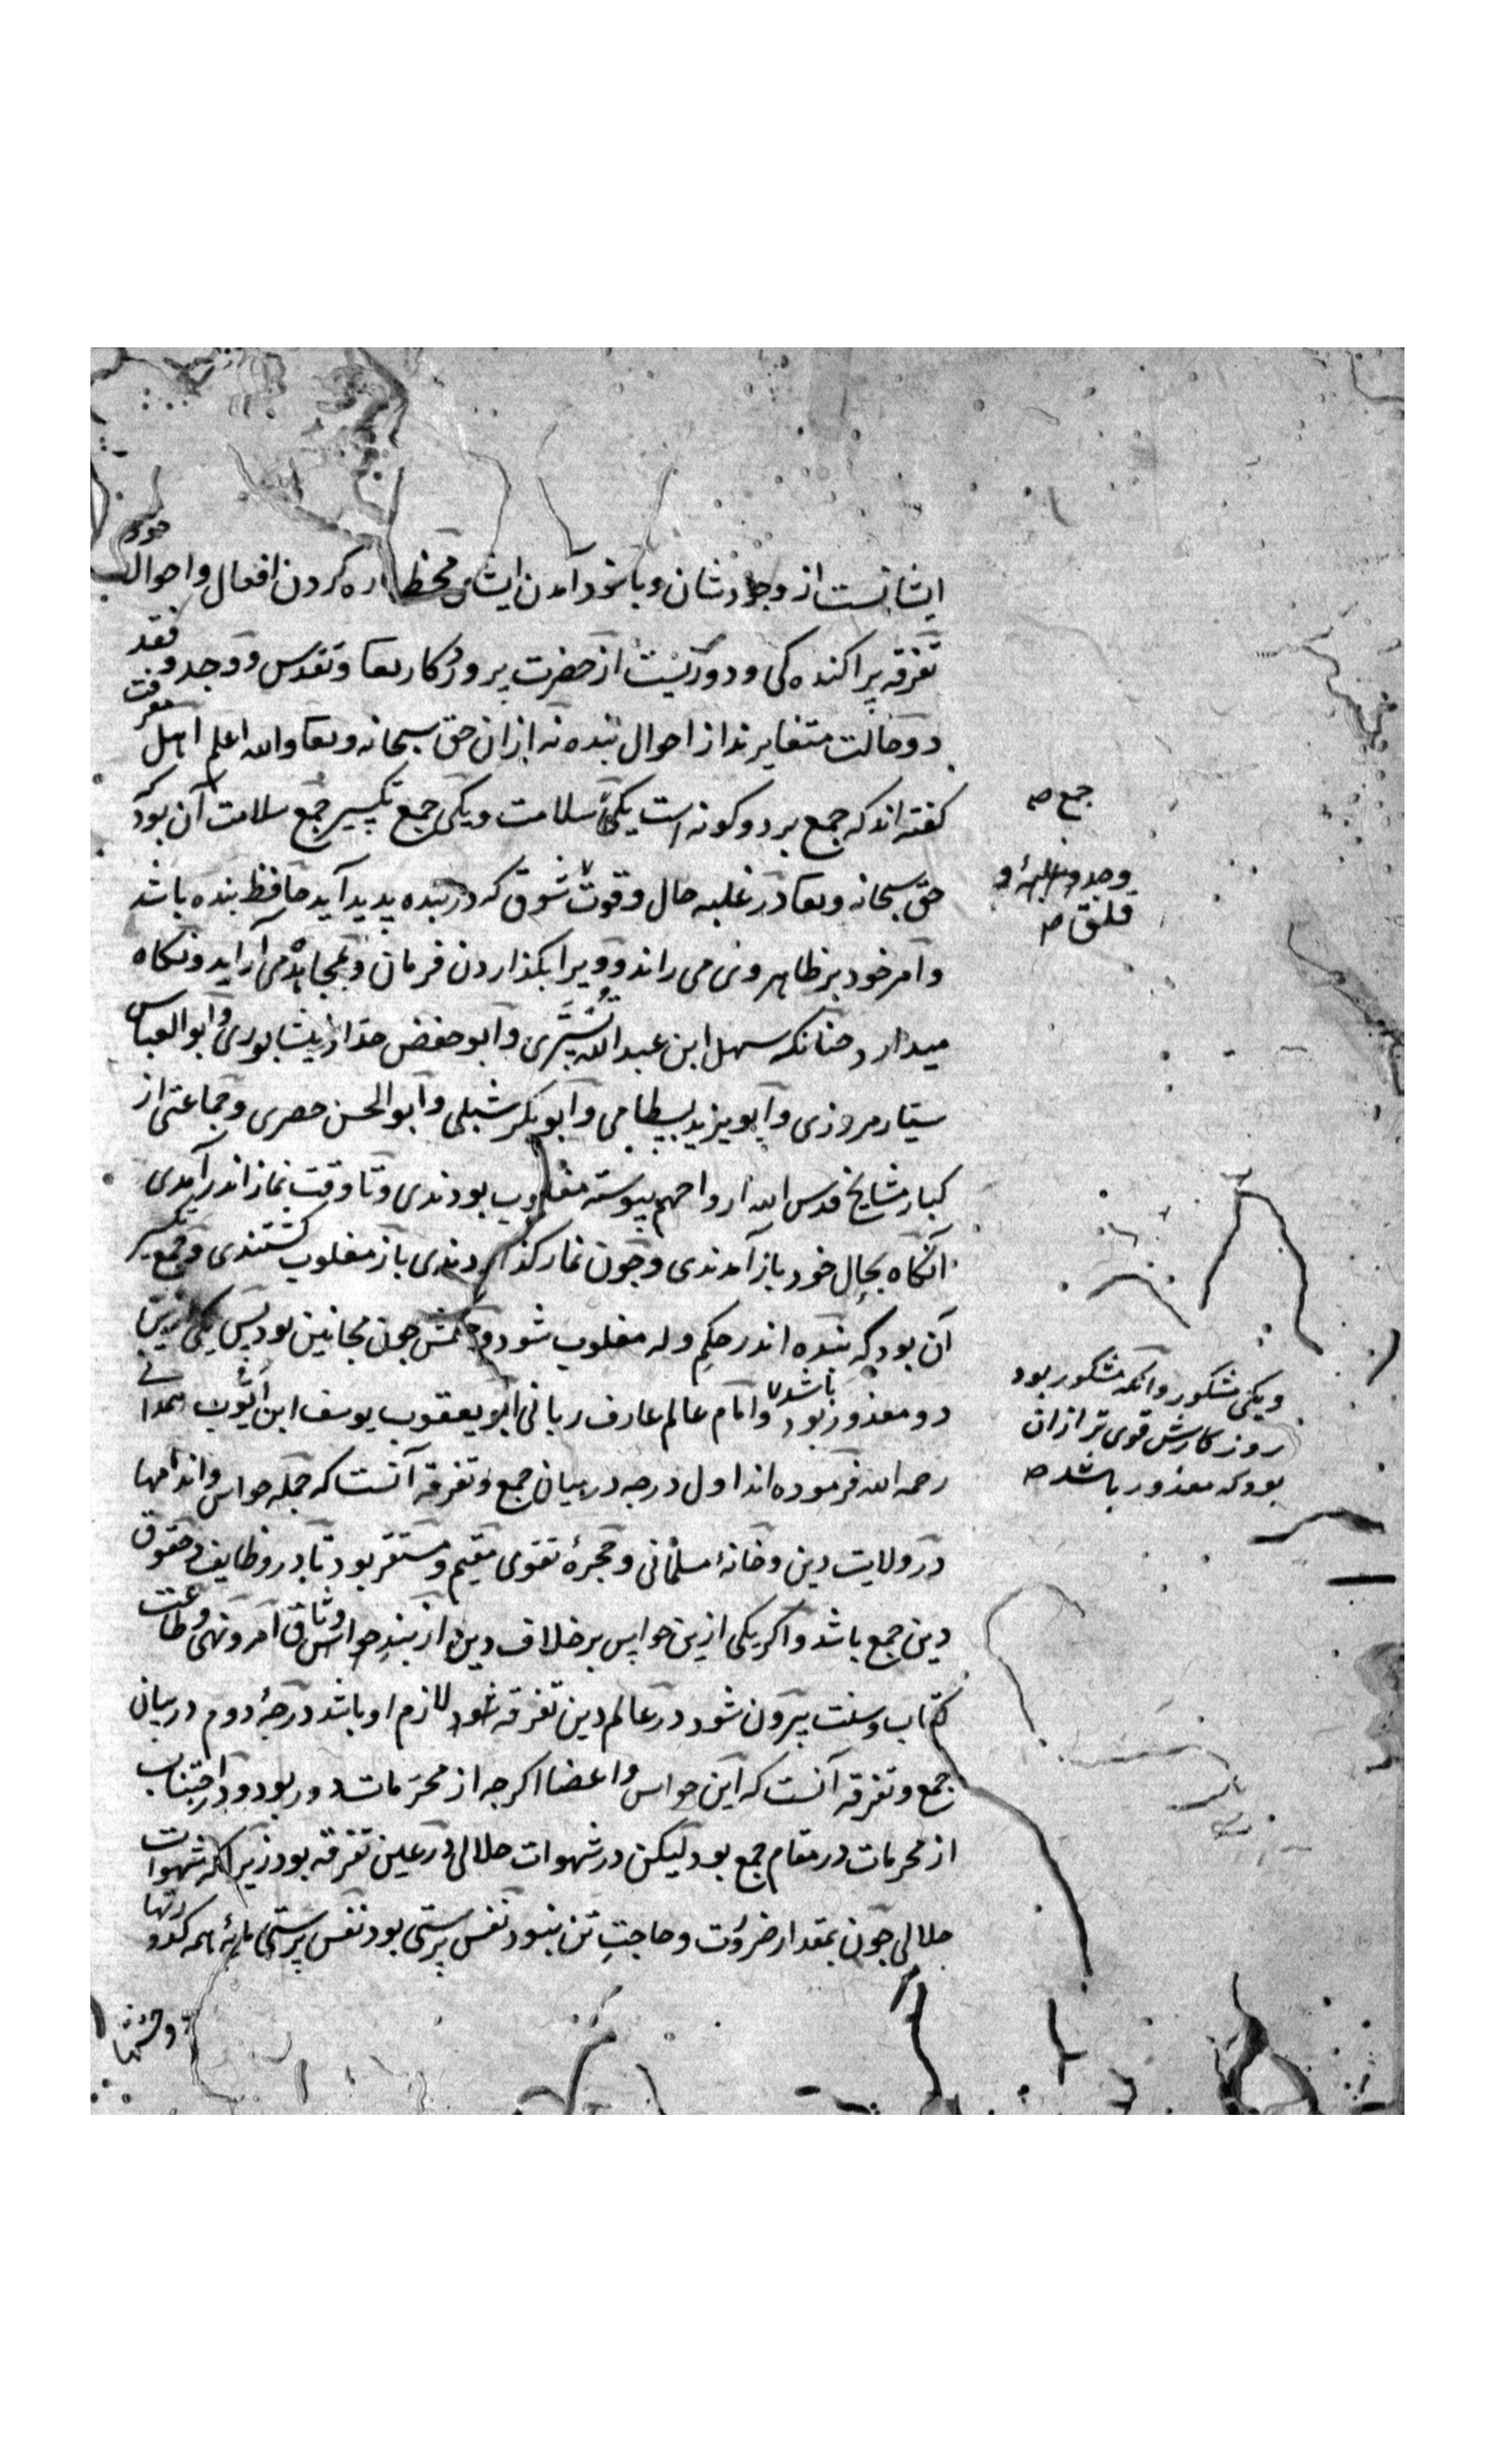 ایشانست از وجودشان و باخود آمدن ایشان محظ اره کردن افعال و احوال خود
تفرقه پراکنده کی و دوریست از حضرت پروردکار تعا و تقدس و وجد و فقد
دو حالت متغایرند از احوال بنده نه ازان حق سبحانه و تعا والله اعلم اهل معرفت
کفته اند که جمع بر دو کونه است یکی سلامت و یکی جمع تکسیر جمع سلامت آن بود که
جمع صح
حق سبحانه و تعا در غلبه حال و قوت شوق که در بنده پدید آید حافظ بنده باشد
وجد و غلبهٔ او
قلق صح
و امر خود بر ظاهر وی می راند و ویرا بکذاردن فرمان و بمجاهده می آراید و نکاه
میدارد چنانکه سهل ابن عبد الله تستری و ابو حفص حداد نیشابوری و ابو العباس
سیّار مروزی و ابو یزید بسطامی و ابو بکر شبلی و ابو الحسن حصری و جماعتی از
کبار مشایخ قدس الله ارواحهم پیوسته مغلوب بودندی و تا وقت نماز اندر آمدی
آنکاه بحال خود باز آمدندی و چون نماز کذاردندی باز مغلوب کشتندی و جمع تکسیر
آن بود که بنده اندر حکم وله مغلوب شود و حکمش چون مجانین بود پس یکی زین
دو معذور بود باشد و امام عالم عارف ربانی ابو یعقوب یوسف ابن ایّوب همدانی
ویکی مشکور و آنکه مشکور بود
روزکارش قوی تر ازان
بود که معذور باشد صح
رحمه الله فرموده اند اول درجه در میان جمع و تفرقه آنست که جمله حواس و اندامها
در ولایت دین و خانهٔ مسلمانی و حجرهٔ تقوی مقیم و مستقر بود تا در وظایف و حقوق
دین جمع باشد و اکر یکی ازین حواس بر خلاف دین از بند حواس وثاق امر و نهی و طاعت
کتاب و سنت بیرون شود در عالم دین تفرقه شود لازم او باشد درجهٔ دوم در بیان
جمع و تفرقه آنست که این حواس و اعضا اکرچه از محرّمات دور بود و در اجتناب
از محرمات در مقام جمع بود لیکن در شهوات حلالی در عین تفرقه بود زیرا که شهوات
حلالی چون بمقدار ضرورت و حاجت تن نبود نفس پرستی بود نفس پرستی مایهٔ همه کدورتها